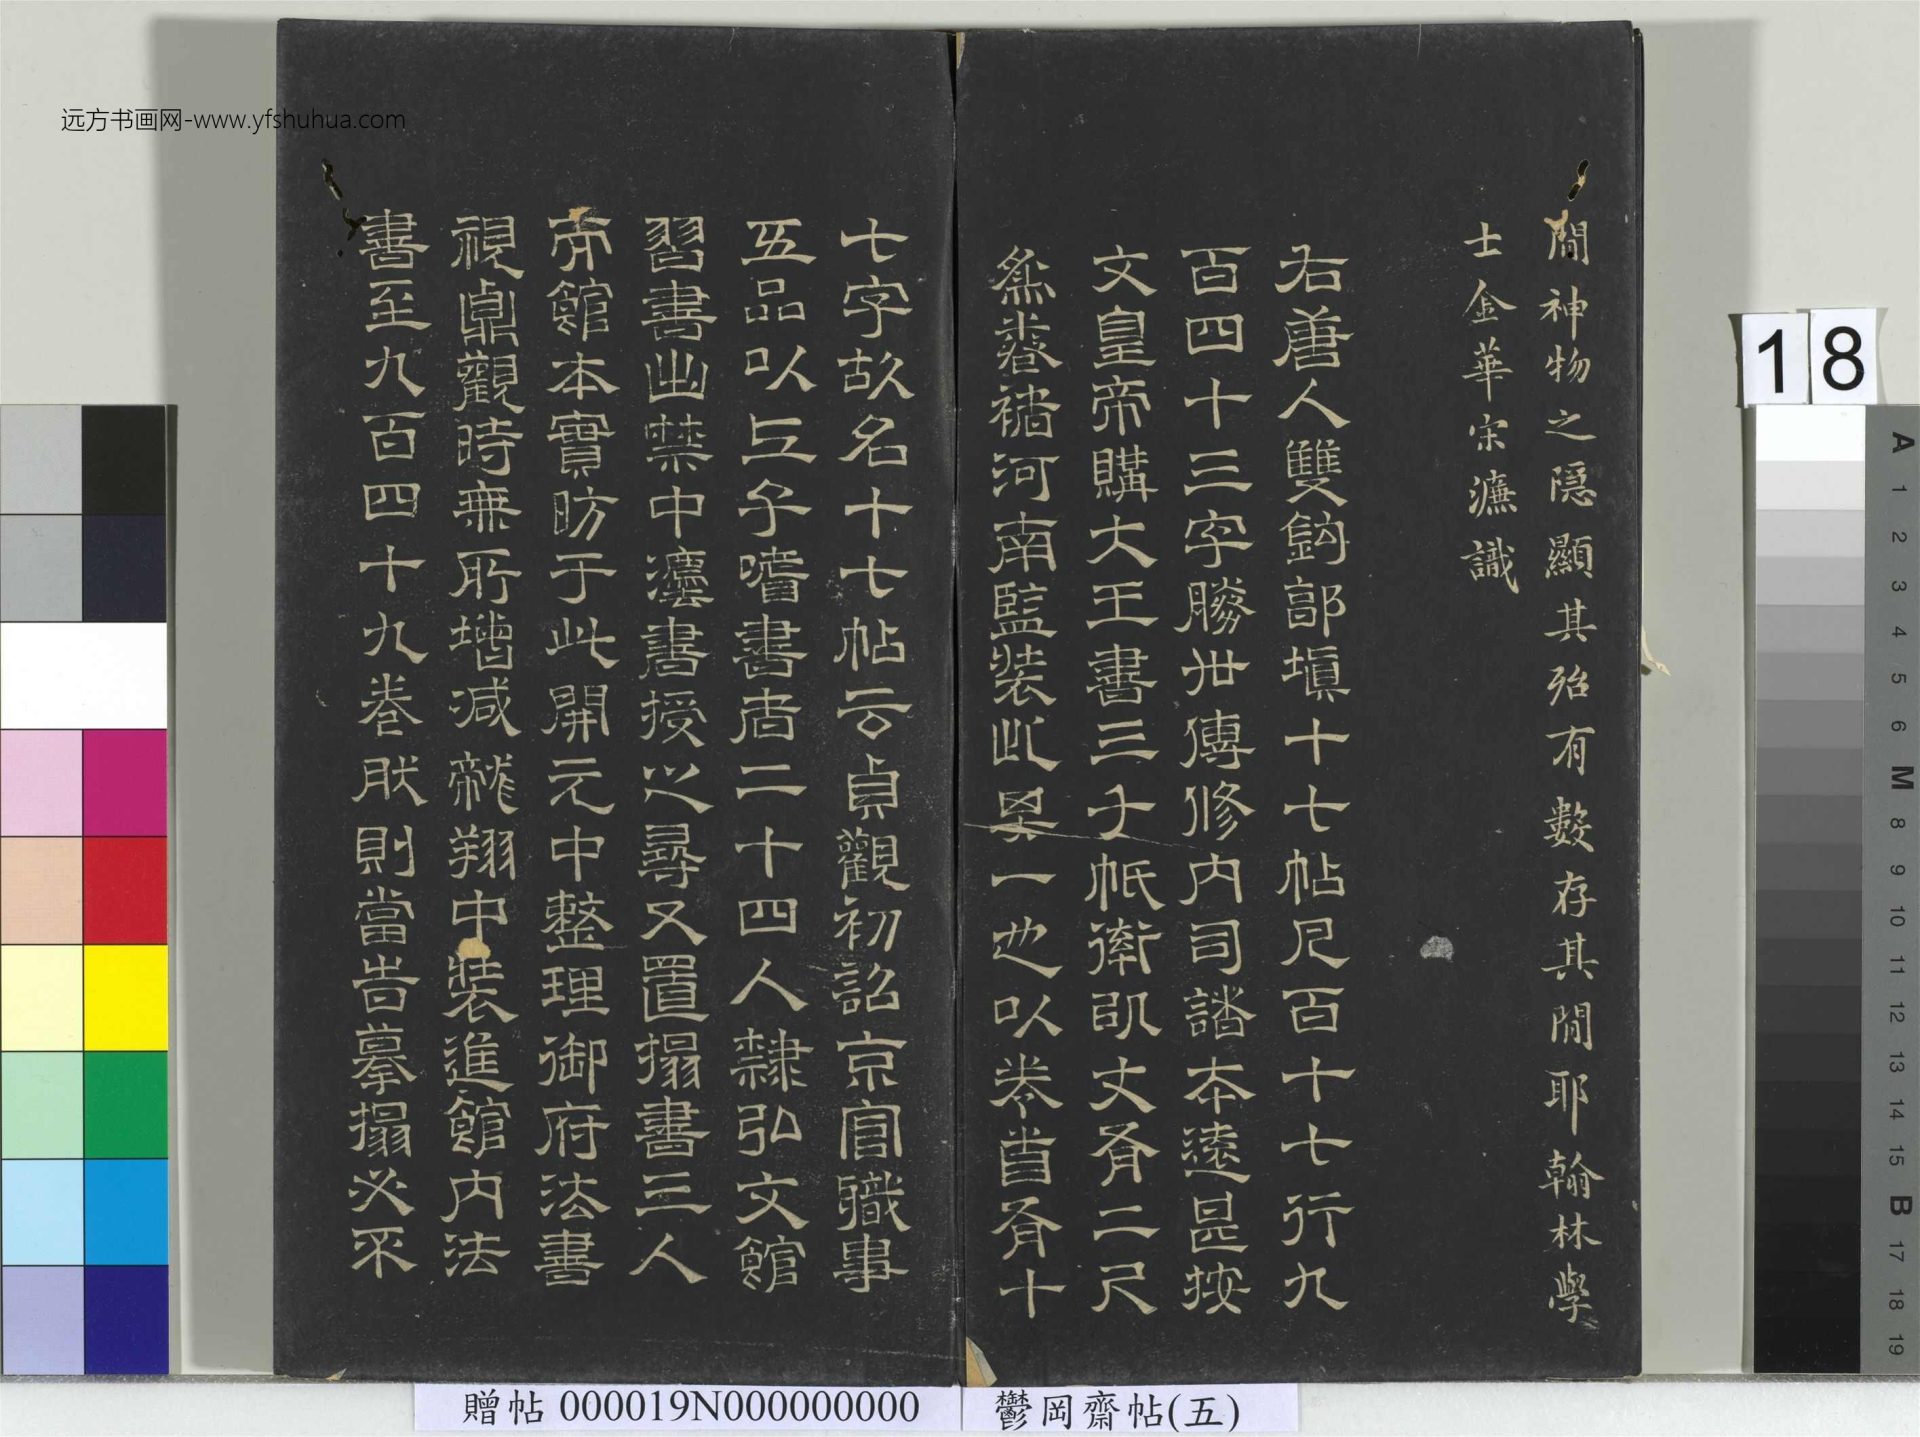 远方书画网-www.yfshuhua.com
間神物之隱顯其殆有數存其間耶翰林學
士金華宋濂識
右唐人雙鉤郭塡十七帖凡百十七行九
百四十三字勝世傳修內司譜本遠甚按
文皇帝購大王書三千帋率以丈有二尺
爲卷褚河南監裝此其一也以卷首有十
七字故名十七帖云貞觀初詔京官職事
五品以上子嗜書者二十四人隸弘文館
習書出禁中灋書授之尋又置搨書三人
館本實昉于此開元中整理御府法書
視眞觀時無所增減龍翔中裝進館內法
書至九百四十九卷然則當時摹搨必不
18
A
1
2
3
4
5
6
M
8
9
10
11
12
13
14
15
B
17
18
19
贈帖 000019N000000000
鬱岡齋帖(五)